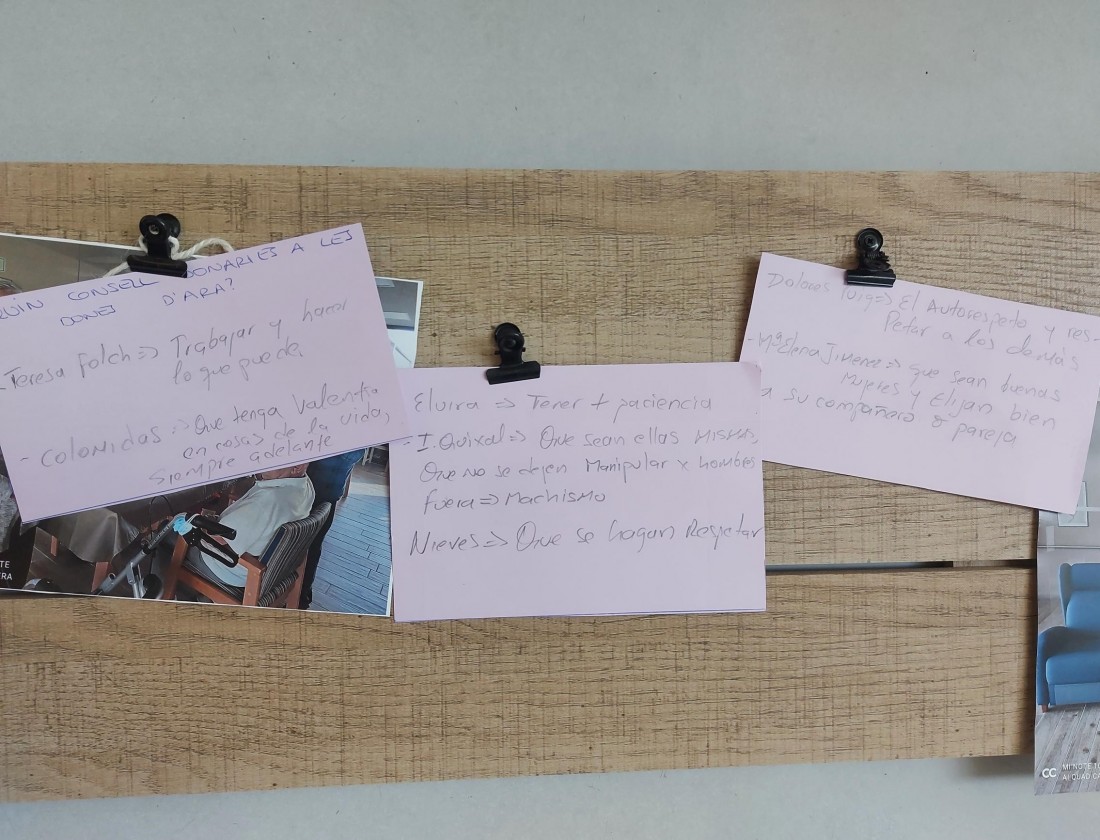 QUIN CONSELL DONARIES A LES
DONES D'ARA?
- Teresa Folch => Trabajar y hacer
lo que puede,
- Colomidas => Que tenga Valentía
en cosas de la vida,
siempre adelante
Elvira => Tener + paciencia
- I. Quixal => Que sean ellas mismas,
Que no se dejen Manipular x hombres
fuera => Machismo
Nieves => Que se hagan Respetar
Dolores Puig => El Autorespeto y res-
Petar a los demás
- Mª Elena Jimenez => que sean buenas
Mujeres y Elijan bien
a su compañero o pareja
TE
ERA
MI NOTE 10
AI QUAD CA